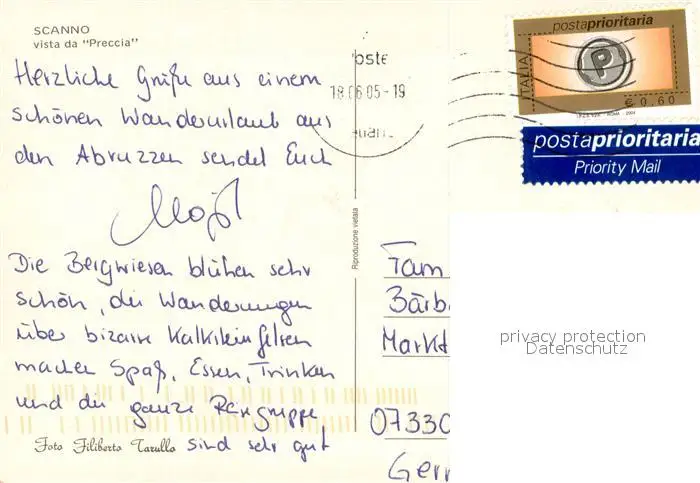 SCANNO
vista da "Preccia"
Herzliche Grüße aus einem
schönen Wanderurlaub aus
den Abruzzen sendet Euch
Die Bergwiesen blühen sehr
schön, die Wanderungen
über bizarre Kalksteinfelsen
machen Spaß, Essen, Trinken
und die ganze Reisegruppe
sind sehr gut
Foto Filiberto Tarullo
Riproduzione vietata
oste
18.06.05-19
postaprioritaria
ITALIA
P
€ 0,60
I.P.Z.S. S.p.A. - ROMA - 2004
postaprioritaria
Priority Mail
Fam
Bärb
Markt
07330
Gerr
privacy protection
Datenschutz